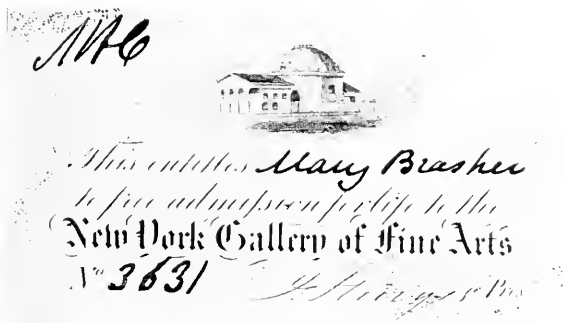 This entitles Mary Brasher
to free admission for life to the
New York Gallery of Fine Arts
No 3631